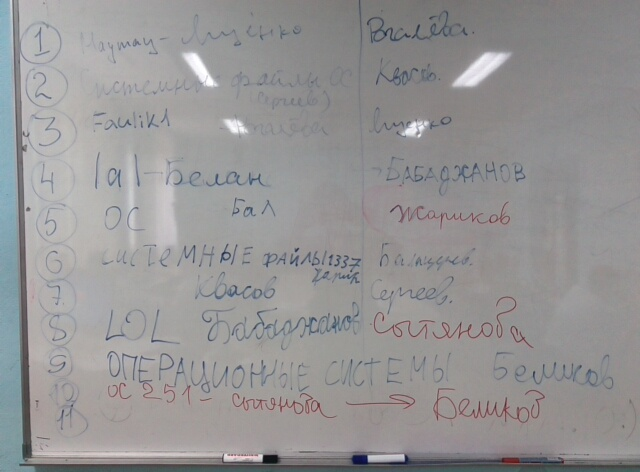 1 Маутац - Ищенко Вгалёва.
2 Системны файлы ОС Квасов.
Сергеев)
3 Faulik1 Ищенко
4 |a|-Белан -БАБАДЖАНОВ
5 ОС Бал Жариков
6 СИСТЕМНЫЕ ФАЙЛЫ1337
7 Квасов Сергеев.
8 LOL Бабаджанов Сытянова
9 ОПЕРАЦИОННЫЕ СИСТЕМЫ Беликов
10 ОС 251 - сытянова → Беликов
11